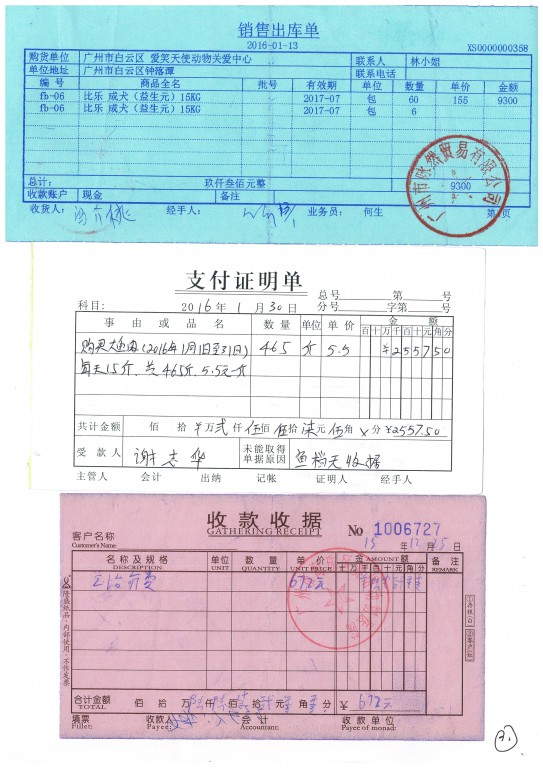 销售出库单
2016-01-13
XS0000000358
购货单位 广州市白云区 爱笑天使动物关爱中心 联系人 林小姐
单位地址 广州市白云区钟落潭 联系电话
编号 商品全名 批号 有效期 单位 数量 单价 金额
fb-06 比乐 成犬（益生元）15KG 2017-07 包 60 155 9300
fb-06 比乐 成犬（益生元）15KG 2017-07 包 6
总计: 玖仟叁佰元整 9300
收款账户 现金 备注
收货人: 经手人: 业务员: 何生 第 页
支付证明单
总号 第 号
科目: 2016年1月30日 分号 字第 号
事由或品名 数量 单位 单价 金额
百十万千百十元角分
购买大鱼肉(2016年1月1日至31日) 465 斤 5.5 ¥255750
每天15斤, 共465斤, 5.5元一斤
共计金额 佰 拾 ¥万贰仟伍佰伍拾柒元伍角 x 分 ¥2557.50
受款人 谢志华 未能取得单据原因 鱼档无收据
主管人 会计 出纳 记帐 证明人 经手人
收款收据
GATHERING RECEIPT
No 1006727
客户名称
Customer's Name:
15年12月15日
名称及规格 单位 数量 单价 金额 备注
DESCRIPTION UNIT QUANTITY UNIT PRICE AMOUNT REMARK
十万千百十元角分
672元
隆盛纸品·内部使用·不作发票
合计金额 佰 拾 万 仟 佰 拾 元 角 分 ¥ 672元
TOTAL
填票 收款人 会计 收款单位
Filler: Payee: Accountant: Payee of monad: